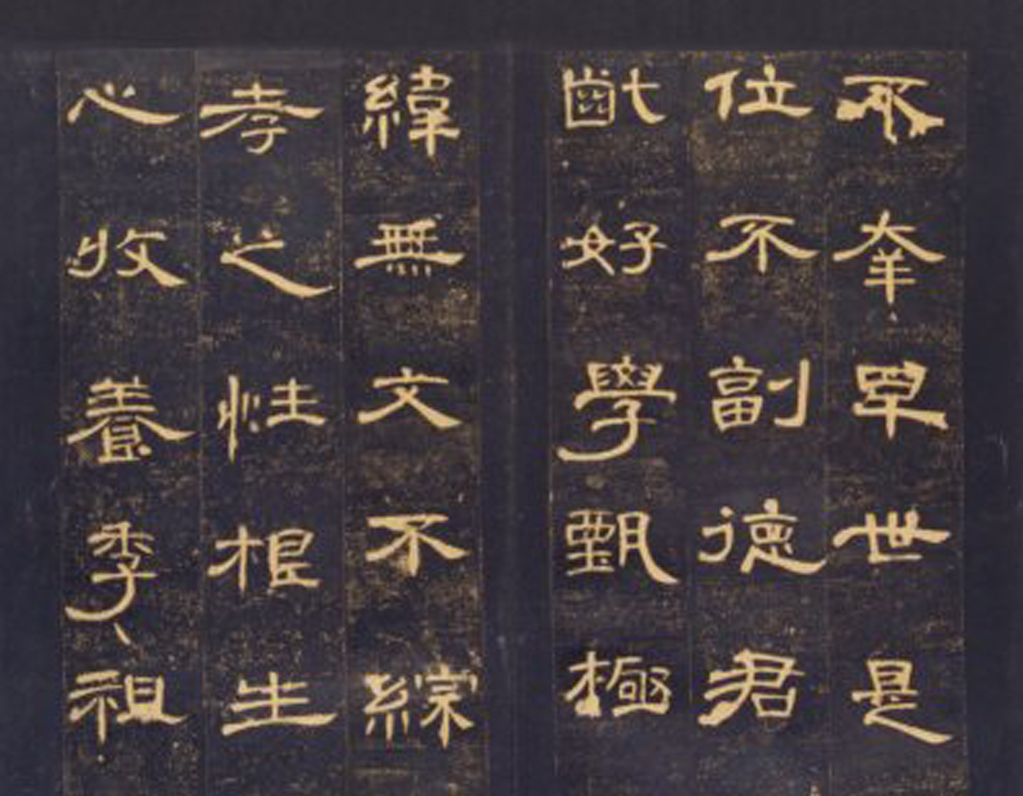 不幸早世是
位不副德君
齔好學甄極
緯無文不綜
孝之性根生
心收養季祖